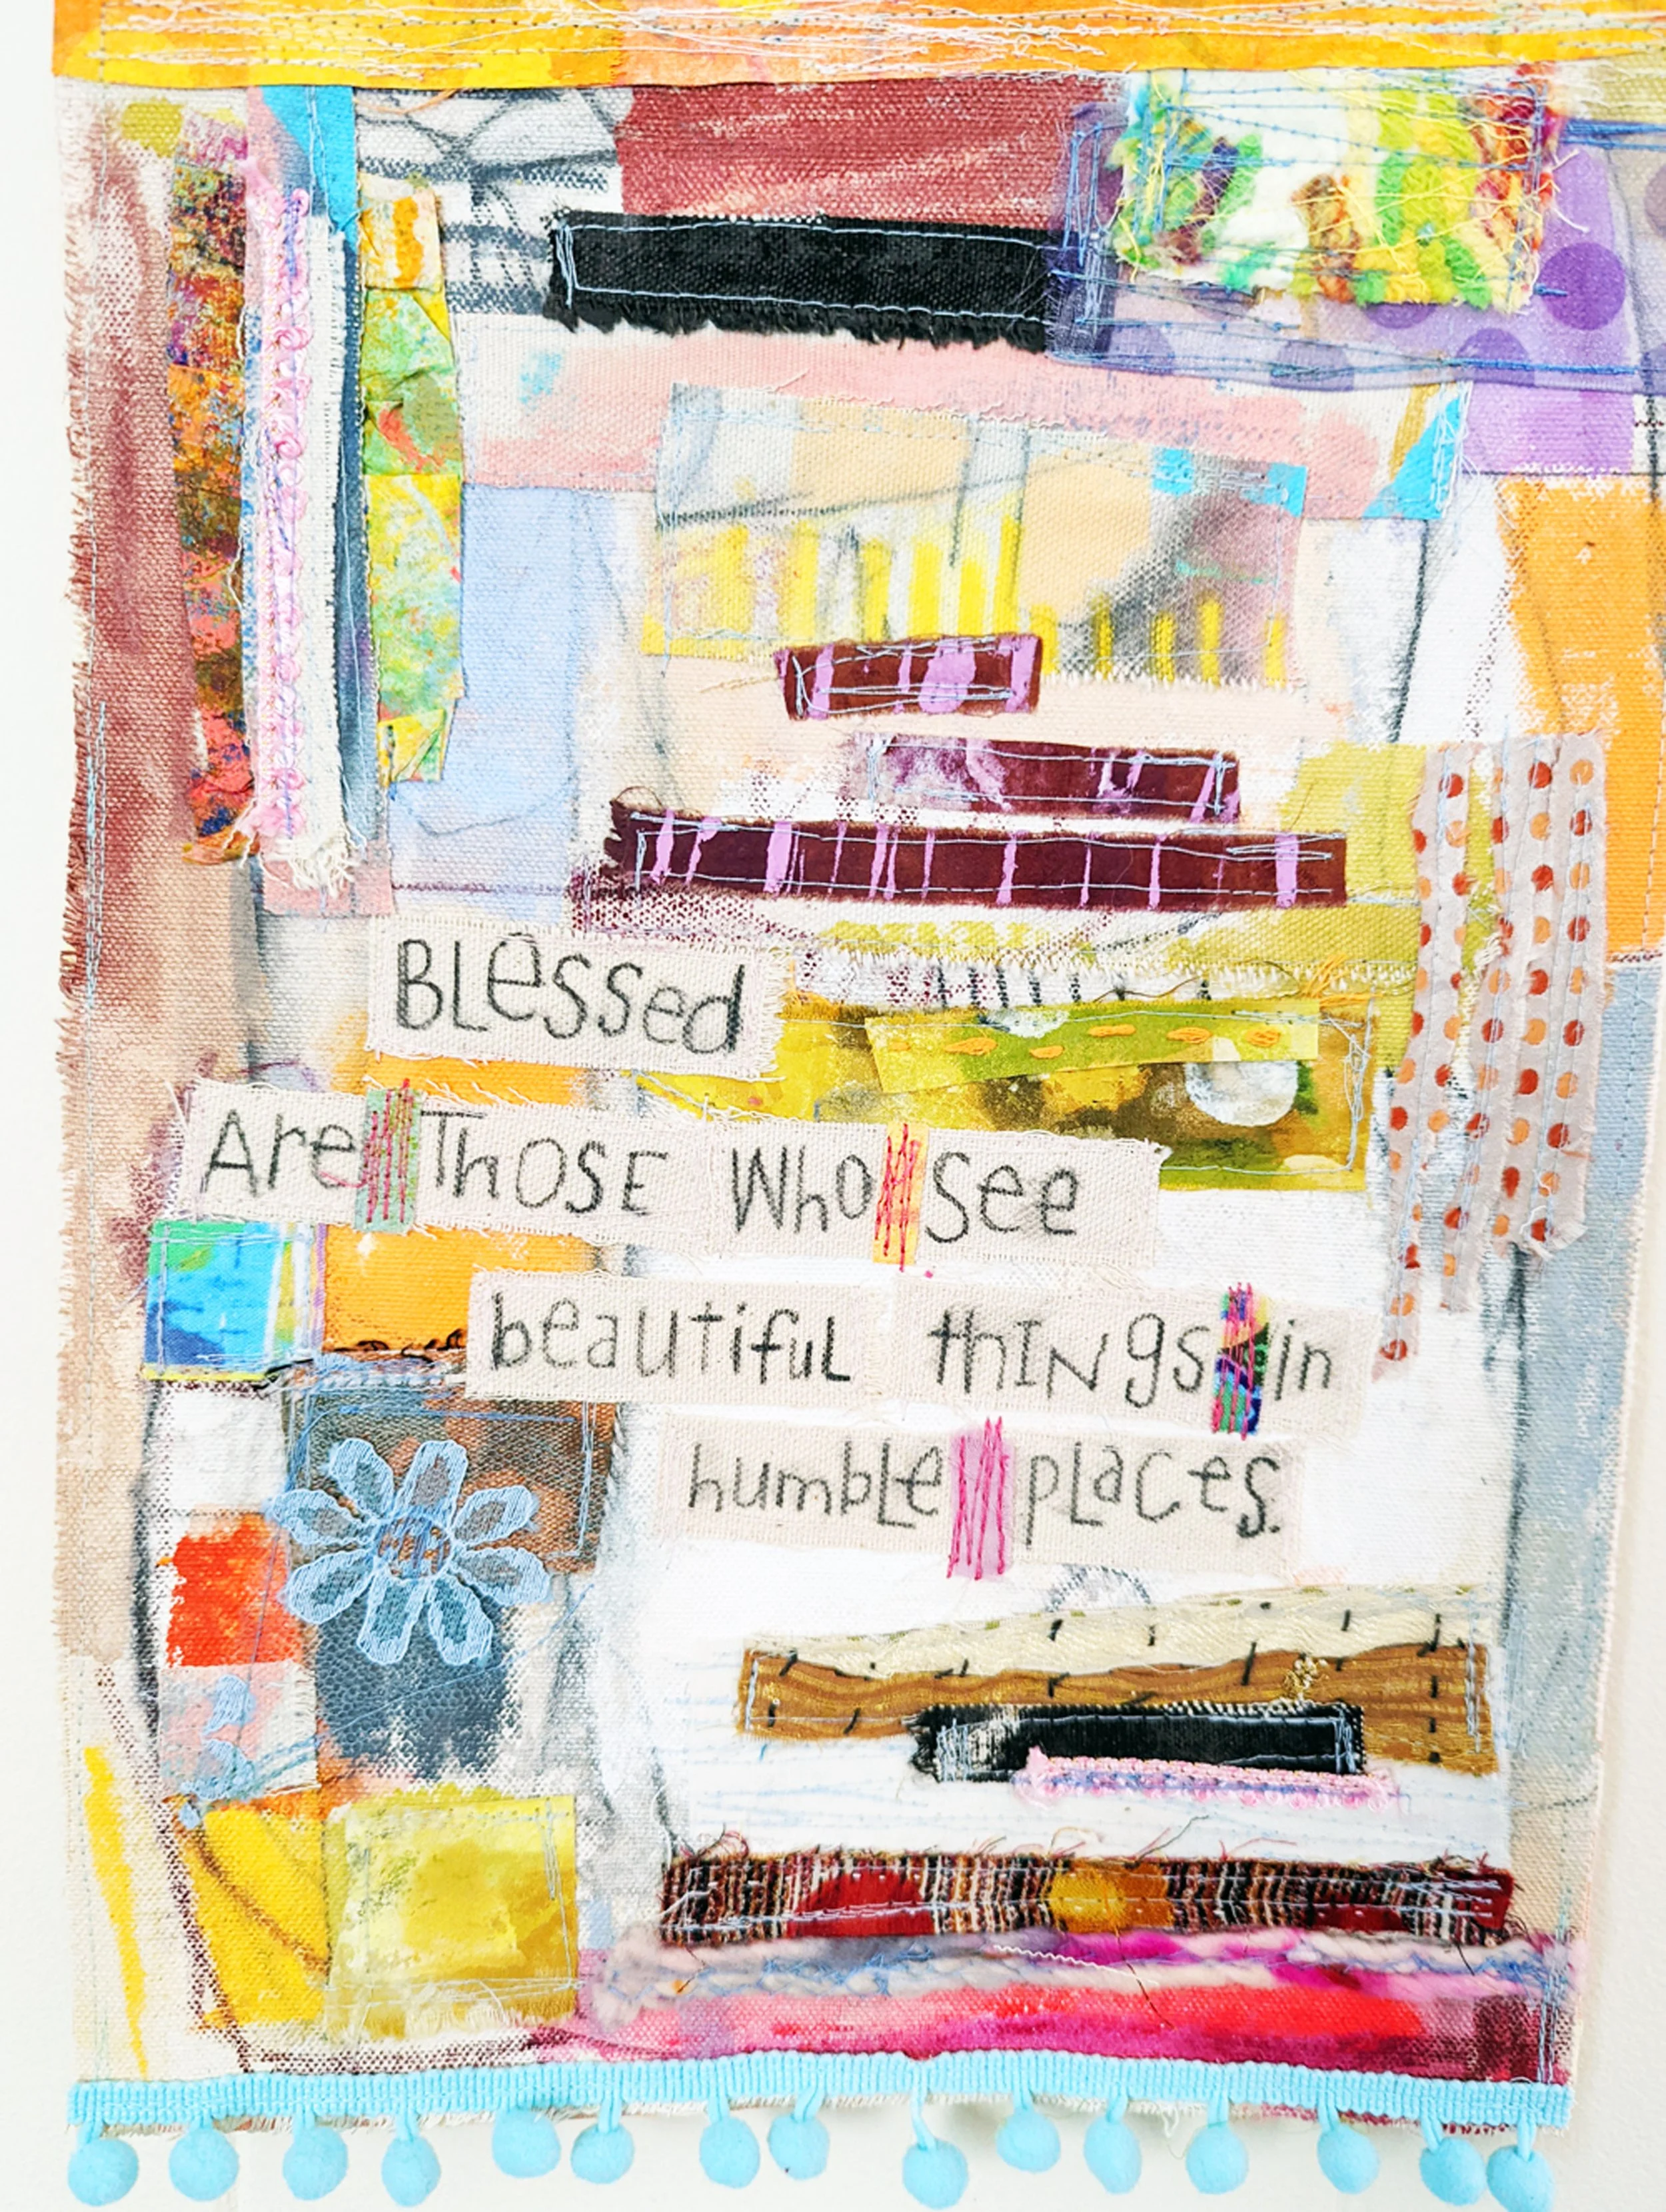 BLessed
Are ThOSE Who see
beautifuL thINgs in
humbLe pLaces.